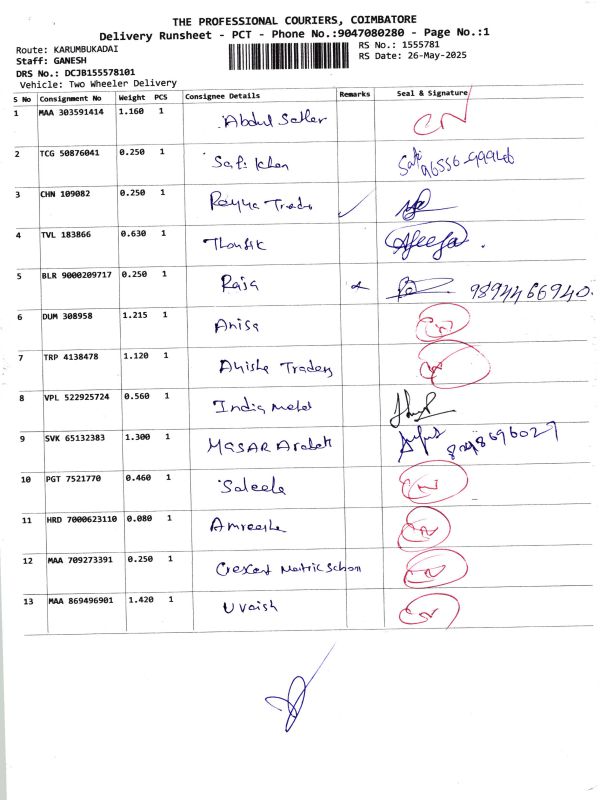 THE PROFESSIONAL COURIERS, COIMBATORE
Delivery Runsheet - PCT - Phone No.:9047080280 - Page No.:1
Route: KARUMBUKADAI
RS No.: 1555781
Staff: GANESH
RS Date: 26-May-2025
DRS No.: DCJB155578101
Vehicle: Two Wheeler Delivery
S No Consignment No Weight PCS Consignee Details Remarks Seal & Signature
1 MAA 303591414 1.160 1 Abdul Satter CN
2 TCG 50876041 0.250 1 Safi Khan Safi 96556-99946
3 CHN 109082 0.250 1 Rayya Trads
4 TVL 183866 0.630 1 Thoufik Afeefa.
5 BLR 9000209717 0.250 1 Raja 9894466940.
6 DUM 308958 1.215 1 Anisa CN
7 TRP 4138478 1.120 1 Ayisha Traders CN
8 VPL 522925724 0.560 1 India metal
9 SVK 65132383 1.300 1 MASAR Arabak
10 PGT 7521770 0.460 1 Saleela CN
11 HRD 7000623110 0.080 1 Amreesha CN
12 MAA 709273391 0.250 1 Crescent Matric School CN
13 MAA 869496901 1.420 1 Uvaish CN